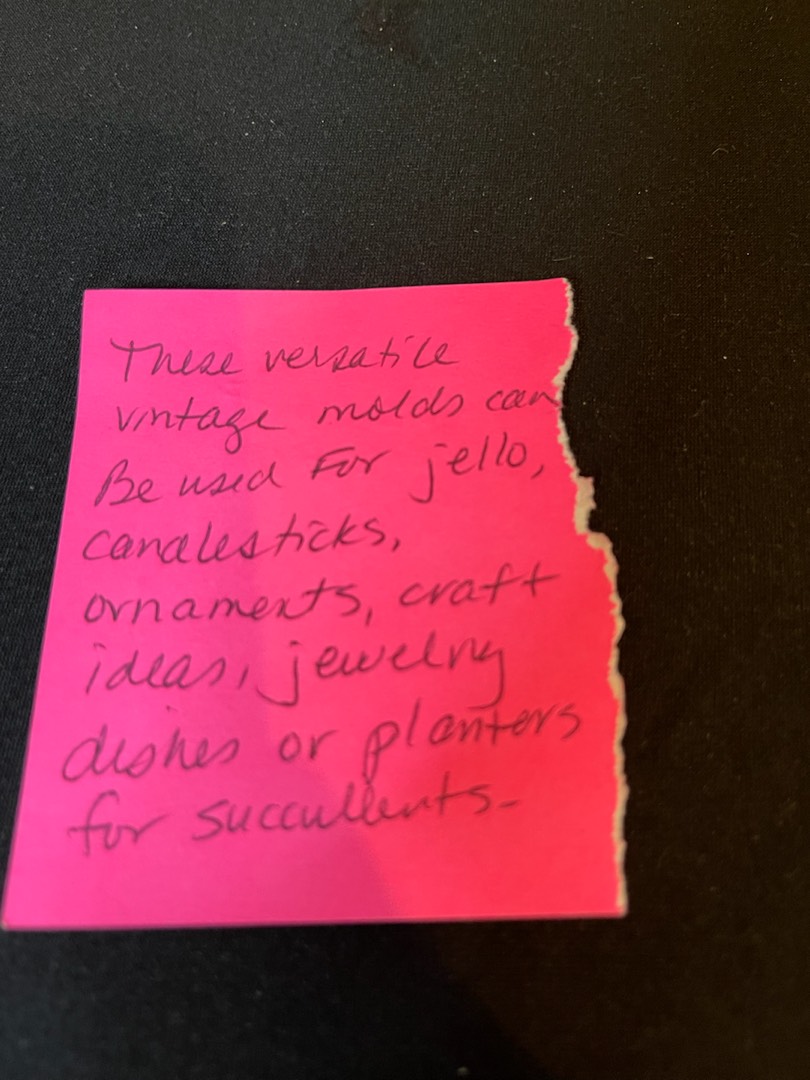 These versatile
vintage molds can
Be used For jello,
candlesticks,
ornaments, craft
ideas, jewelry
dishes or planters
for succullents-